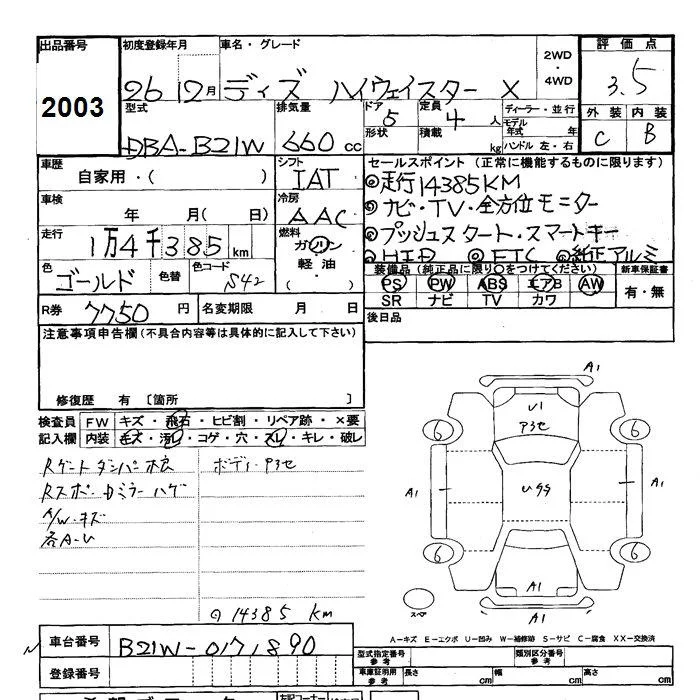 出品番号 初度登録年月 車名・グレード 2WD・4WD 評価点
2003 26 12月 ディズ ハイウェイスター X 3.5
型式 排気量 ドア 5 定員 4 人 ディーラー・並行 外装 内装
DBA-B21W 660cc 形状 積載 kg モデル年式 年式 ハンドル 左・右 C B
車歴 シフト セールスポイント (正常に機能するものに限ります)
自家用・( ) IAT ◎走行14385KM
車検 冷房 ◎ナビ・TV・全方位モニター
年 月( 日) AAC ◎プッシュスタート・スマートキー
走行 燃料 ◎HID ◎ETC ◎純正アルミ
1万4千385km ガソリン 装備品 (純正品に限り○をつけてください) 新車保証書
色 色替 色コード 軽・油 PS PW ABS エアB AW 有・無
ゴールド S42 ( ) SR ナビ TV カワ
R券 7750円 名変期限 月 日 後日品
注意事項申告欄(不具合内容等は具体的に記入して下さい)
修復歴 有 〔箇所 〕
検査員 FW キズ・飛石・ヒビ割・リペア跡・×要
記入欄 内装 キズ・汚レ・コゲ・穴・スレ・キレ・破レ
Rゲートダンパー ボディ・
Rスポ・ミラーハゲ
A/W・キズ
各A-U
A1
U1
6 6
A1 A1
6 6
A1
スペ A1
◎14385 km
A-キズ E-エクボ U-凹み W-補修跡 S-サビ C-腐食 XX-交換済
車台番号 B21W-0171890
登録番号
型式指定番号 参考 類別区分番号 参考
車庫証明用 参考 長さ cm 幅 cm 高さ cm